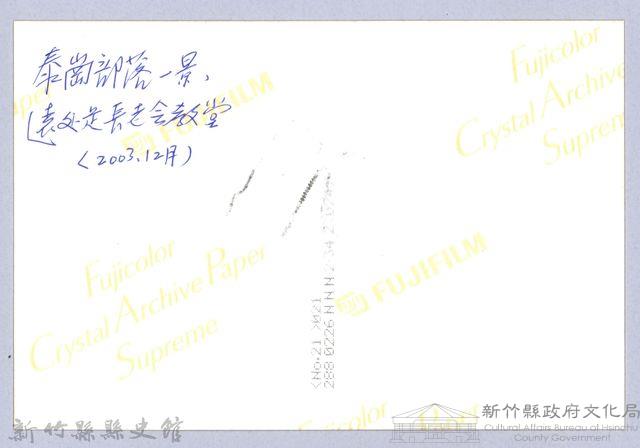 泰崗部落一景,
遠处是長老会教堂
(2003.12月)
Fujicolor
Crystal Archive Paper
Supreme
FUJIFILM
Fujicolor
Crystal Archive
Supreme
FUJIFILM
<No.21 >021
288 0226 N N N
Fujicolor
新竹縣縣史館
新竹縣政府文化局
Cultural Affairs Bureau of Hsinchu
County Government